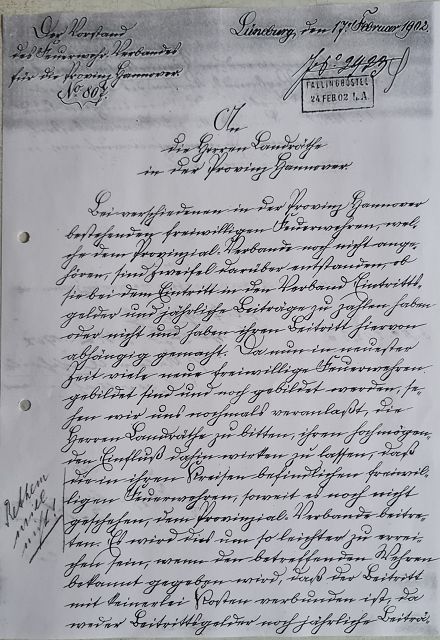 Der Vorstand
des Feuerwehr-Verbandes
für die Provinz Hannover.
No 807.
Lüneburg, den 17. Februar 1902.
FALLINGBOSTEL
24 FEB. 02 L.A
An
die Herren Landräthe
in der Provinz Hannover.
Bei verschiedenen in der Provinz Hannover
bestehenden freiwilligen Feuerwehren, wel-
che dem Provinzial-Verbande noch nicht ange-
hören, sind Zweifel darüber entstanden, ob
sie bei dem Eintritt in den Verband Eintritts-
gelder und jährliche Beiträge zu zahlen haben
oder nicht und haben ihren Beitritt hiervon
abhängig gemacht. Da nun in neuester
Zeit viele neue freiwillige Feuerwehren
gebildet sind und noch gebildet werden, se-
hen wir uns nochmals veranlaßt, die
Herren Landräthe zu bitten, ihren hochmögen-
den Einfluß dahin wirken zu lassen, daß
die in ihren Kreisen befindlichen freiwil-
ligen Feuerwehren, soweit es noch nicht
geschehen, dem Provinzial-Verbande beitre-
ten. Es wird dies um so leichter zu errei-
chen sein, wenn den betreffenden Wehren
bekannt gegeben wird, daß der Beitritt
mit keinerlei Kosten verbunden ist, da
weder Beitrittsgelder noch jährliche Beiträ-
Rethem
will
nicht!